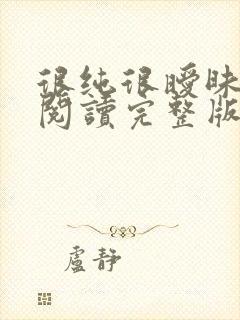 很纯很曖昧
閱讀完整版
盧靜